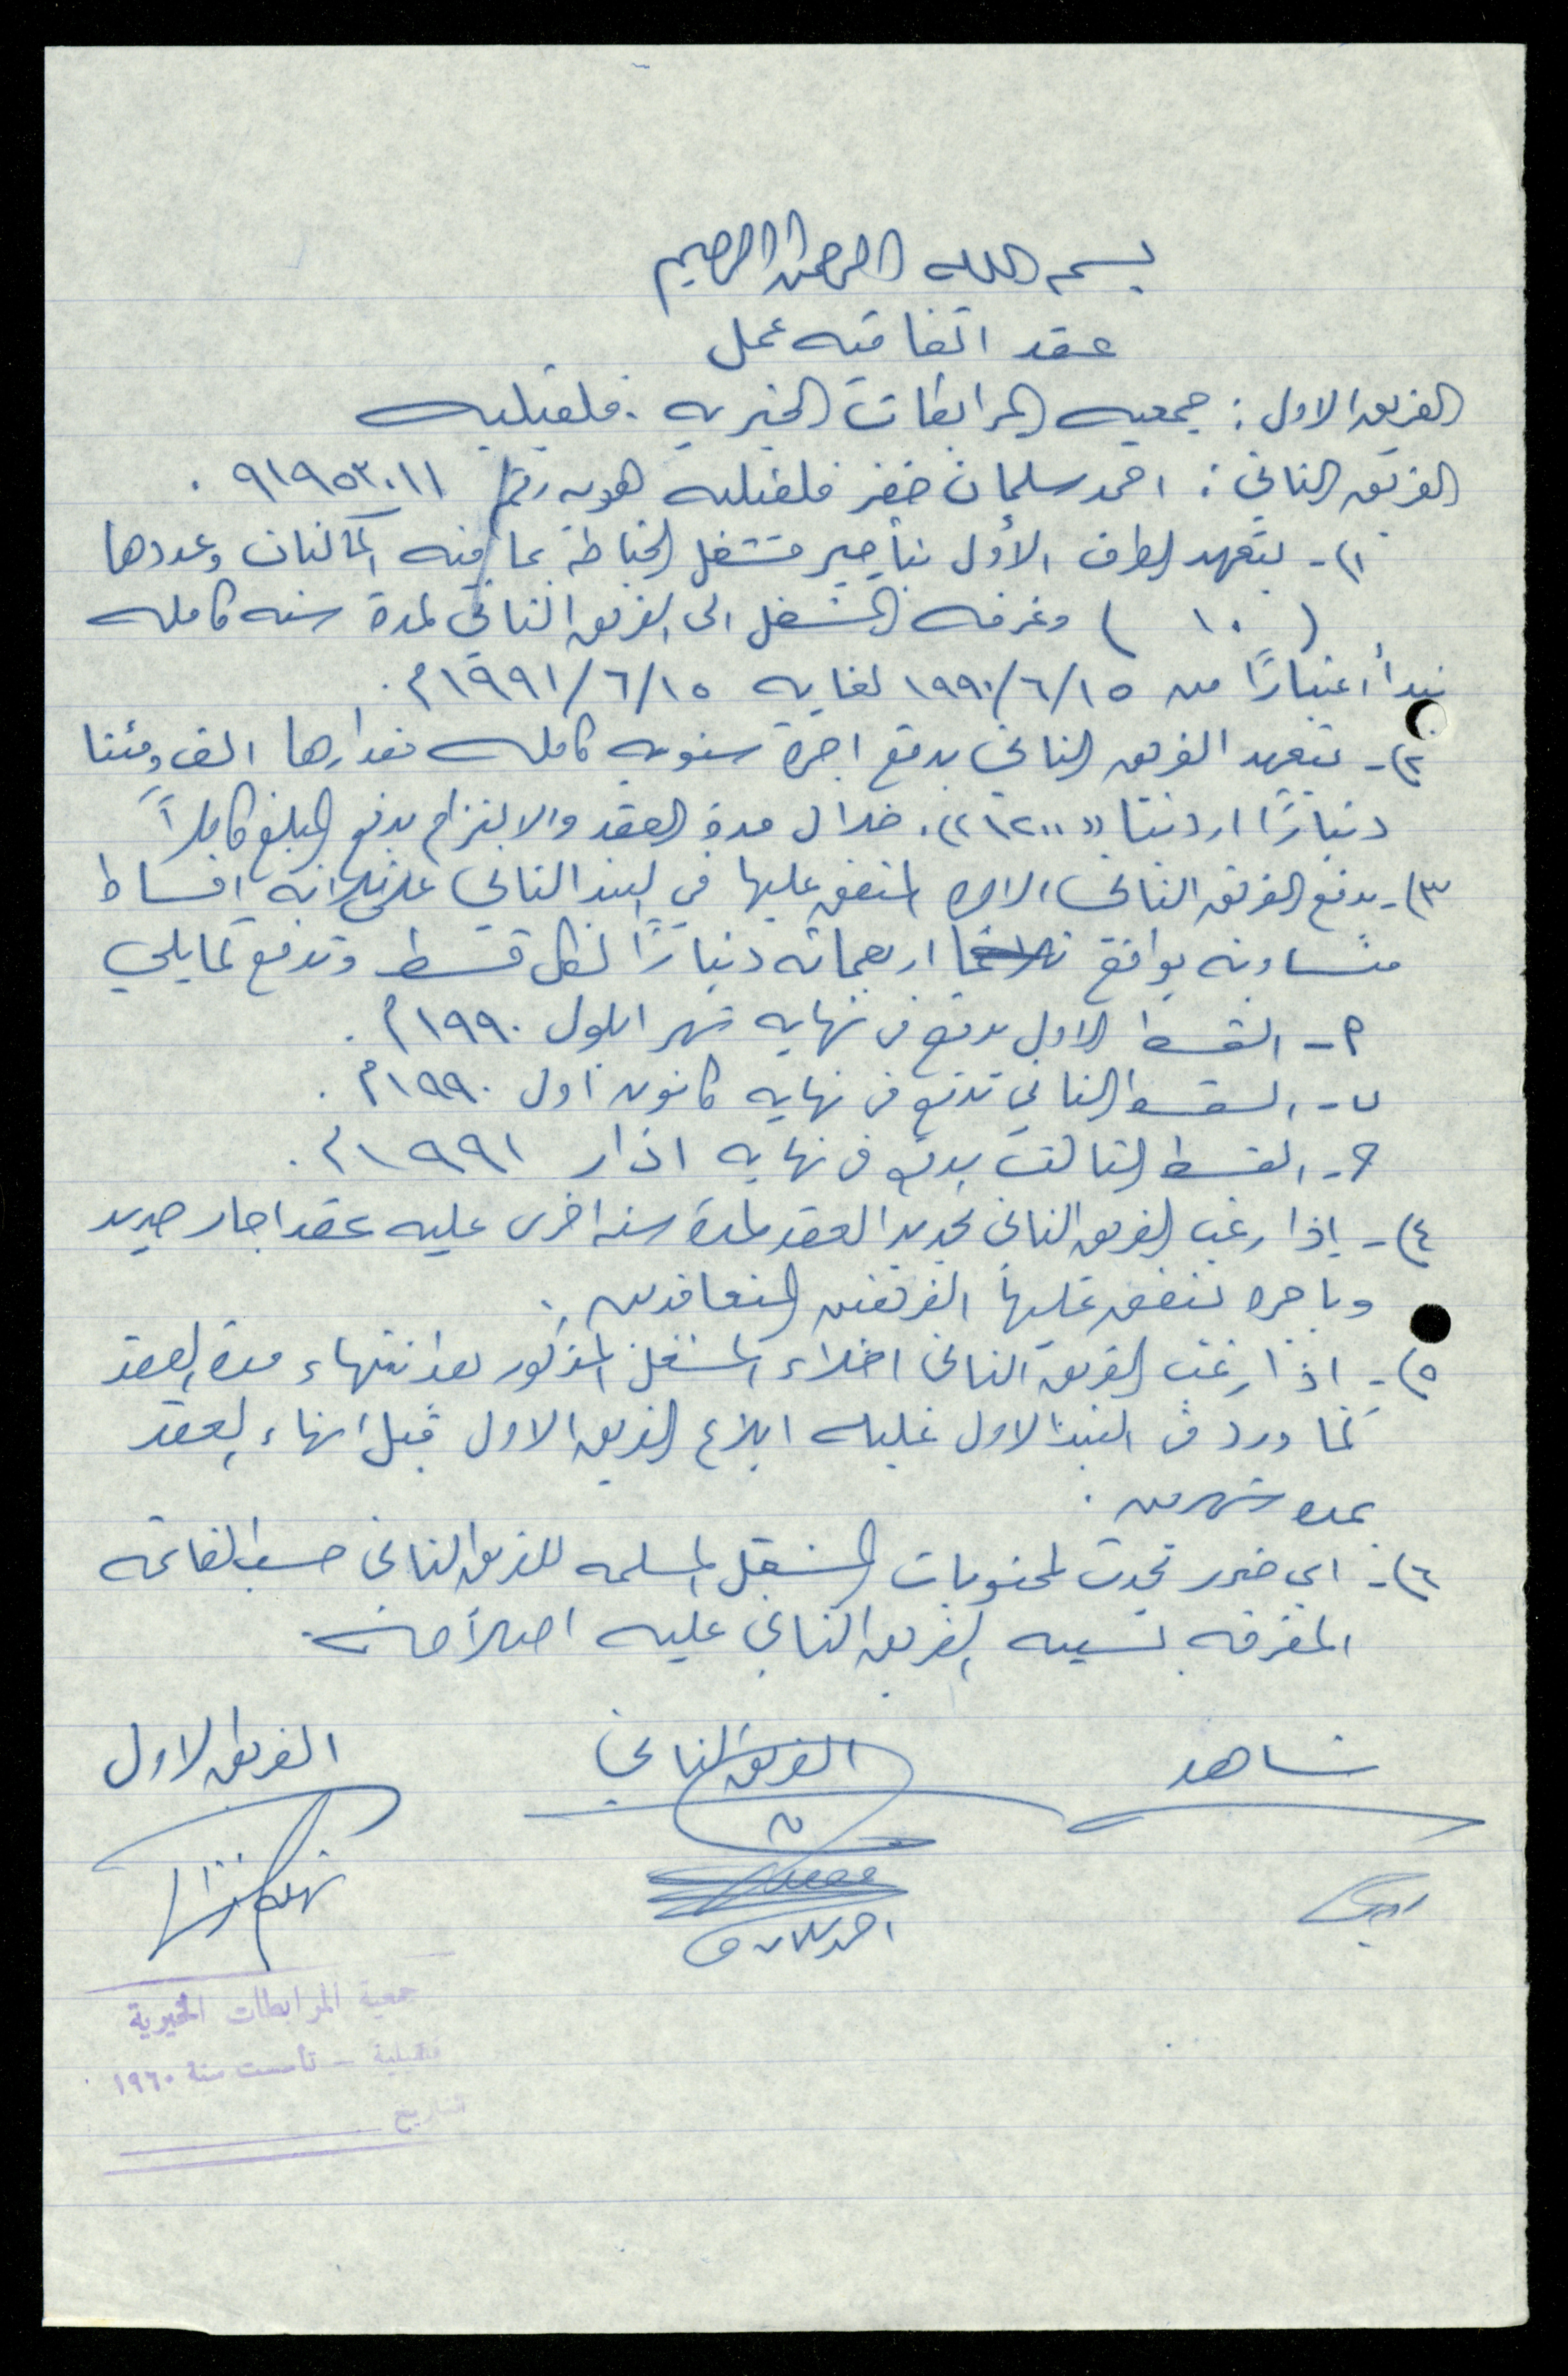 بسم الله الرحمن الرحيم
عقد اتفاقيه عمل
الفريق الاول : جمعيه المرابطات الخيريه . قلقيليه
الفريق الثاني : احمد سلمان خضر قلقيليه هويه رقم ٩١٩٥٣٠١١ .
١) - يتعهد الطرف الأول بتأجير مشغل الخياطة بما فيه الماكنات وعددها
( ١٠ ) وغرفه المشغل الى الفريق الثاني لمدة سنه كامله
تبدأ اعتبارًا من ١٩٩٠/٦/١٥ لغايه ١٩٩١/٦/١٥م .
٢) - يتعهد الفريق الثاني بدفع اجرة سنويه كامله مقدارها الف ومئتا
دينارًا اردنيًا «١٢٠٠» . خلال مدة العقد والالتزام بدفع المبلغ كاملاً
٣) - يدفع الفريق الثاني الاجره المتفق عليها في البند الثاني على ثلاثة اقساط
متساويه بواقع اربعمائه دينارًا لكل قسط وتدفع كمايلي
أ - القسط الاول يدفع في نهايه شهر ايلول ١٩٩٠م .
ب - القسط الثاني تدفع في نهايه كانون اول ١٩٩٠م .
ج - القسط الثالث يدفع في نهايه اذار ١٩٩١م .
٤) - إذا رغب الفريق الثاني تجديد العقد لمدة سنه اخرى عليه عقد اجار جديد
وباجره يتفق عليها الفريقين المتعاقدين .
٥) - اذا رغب الفريق الثاني اخلاء المشغل المذكور بعد انتهاء مدة العقد
كما ورد في البند الاول عليه ابلاغ الفريق الاول قبل انهاء العقد
بمده شهرين .
٦) - اي ضرر تحدث لمحتويات المشغل المسلمه للفريق الثاني حسب القائمه
المرفقه بسببه الفريق الثاني عليه اصلاحه .
شاهد
الفريق الثاني
الفريق الاول
جمعية المرابطات الخيرية
قلقيلية - تأسست سنة ١٩٦٠
التاريخ